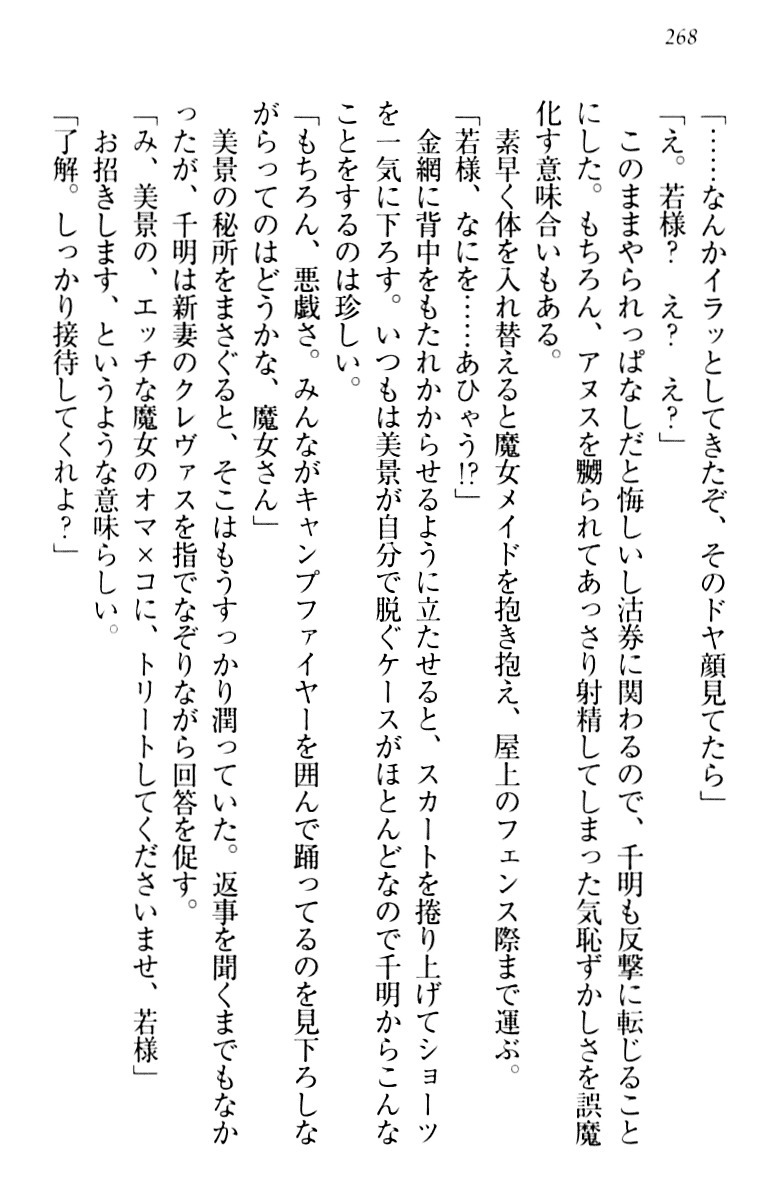 268
「……なんかイラッとしてきたぞ、そのドヤ顔見てたら」
「え。若様？　え？　え？」
　このままやられっぱなしだと悔しいし沽券に関わるので、千明も反撃に転じること
にした。もちろん、アヌスを嬲られてあっさり射精してしまった気恥ずかしさを誤魔
化す意味合いもある。
　素早く体を入れ替えると魔女メイドを抱き抱え、屋上のフェンス際まで運ぶ。
「若様、なにを……あひゃう!?」
　金網に背中をもたれかからせるように立たせると、スカートを捲り上げてショーツ
を一気に下ろす。いつもは美景が自分で脱ぐケースがほとんどなので千明からこんな
ことをするのは珍しい。
「もちろん、悪戯さ。みんながキャンプファイヤーを囲んで踊ってるのを見下ろしな
がらってのはどうかな、魔女さん」
　美景の秘所をまさぐると、そこはもうすっかり潤っていた。返事を聞くまでもなか
ったが、千明は新妻のクレヴァスを指でなぞりながら回答を促す。
「み、美景の、エッチな魔女のオマ×コに、トリートしてくださいませ、若様」
　お招きします、というような意味らしい。
「了解。しっかり接待してくれよ？」